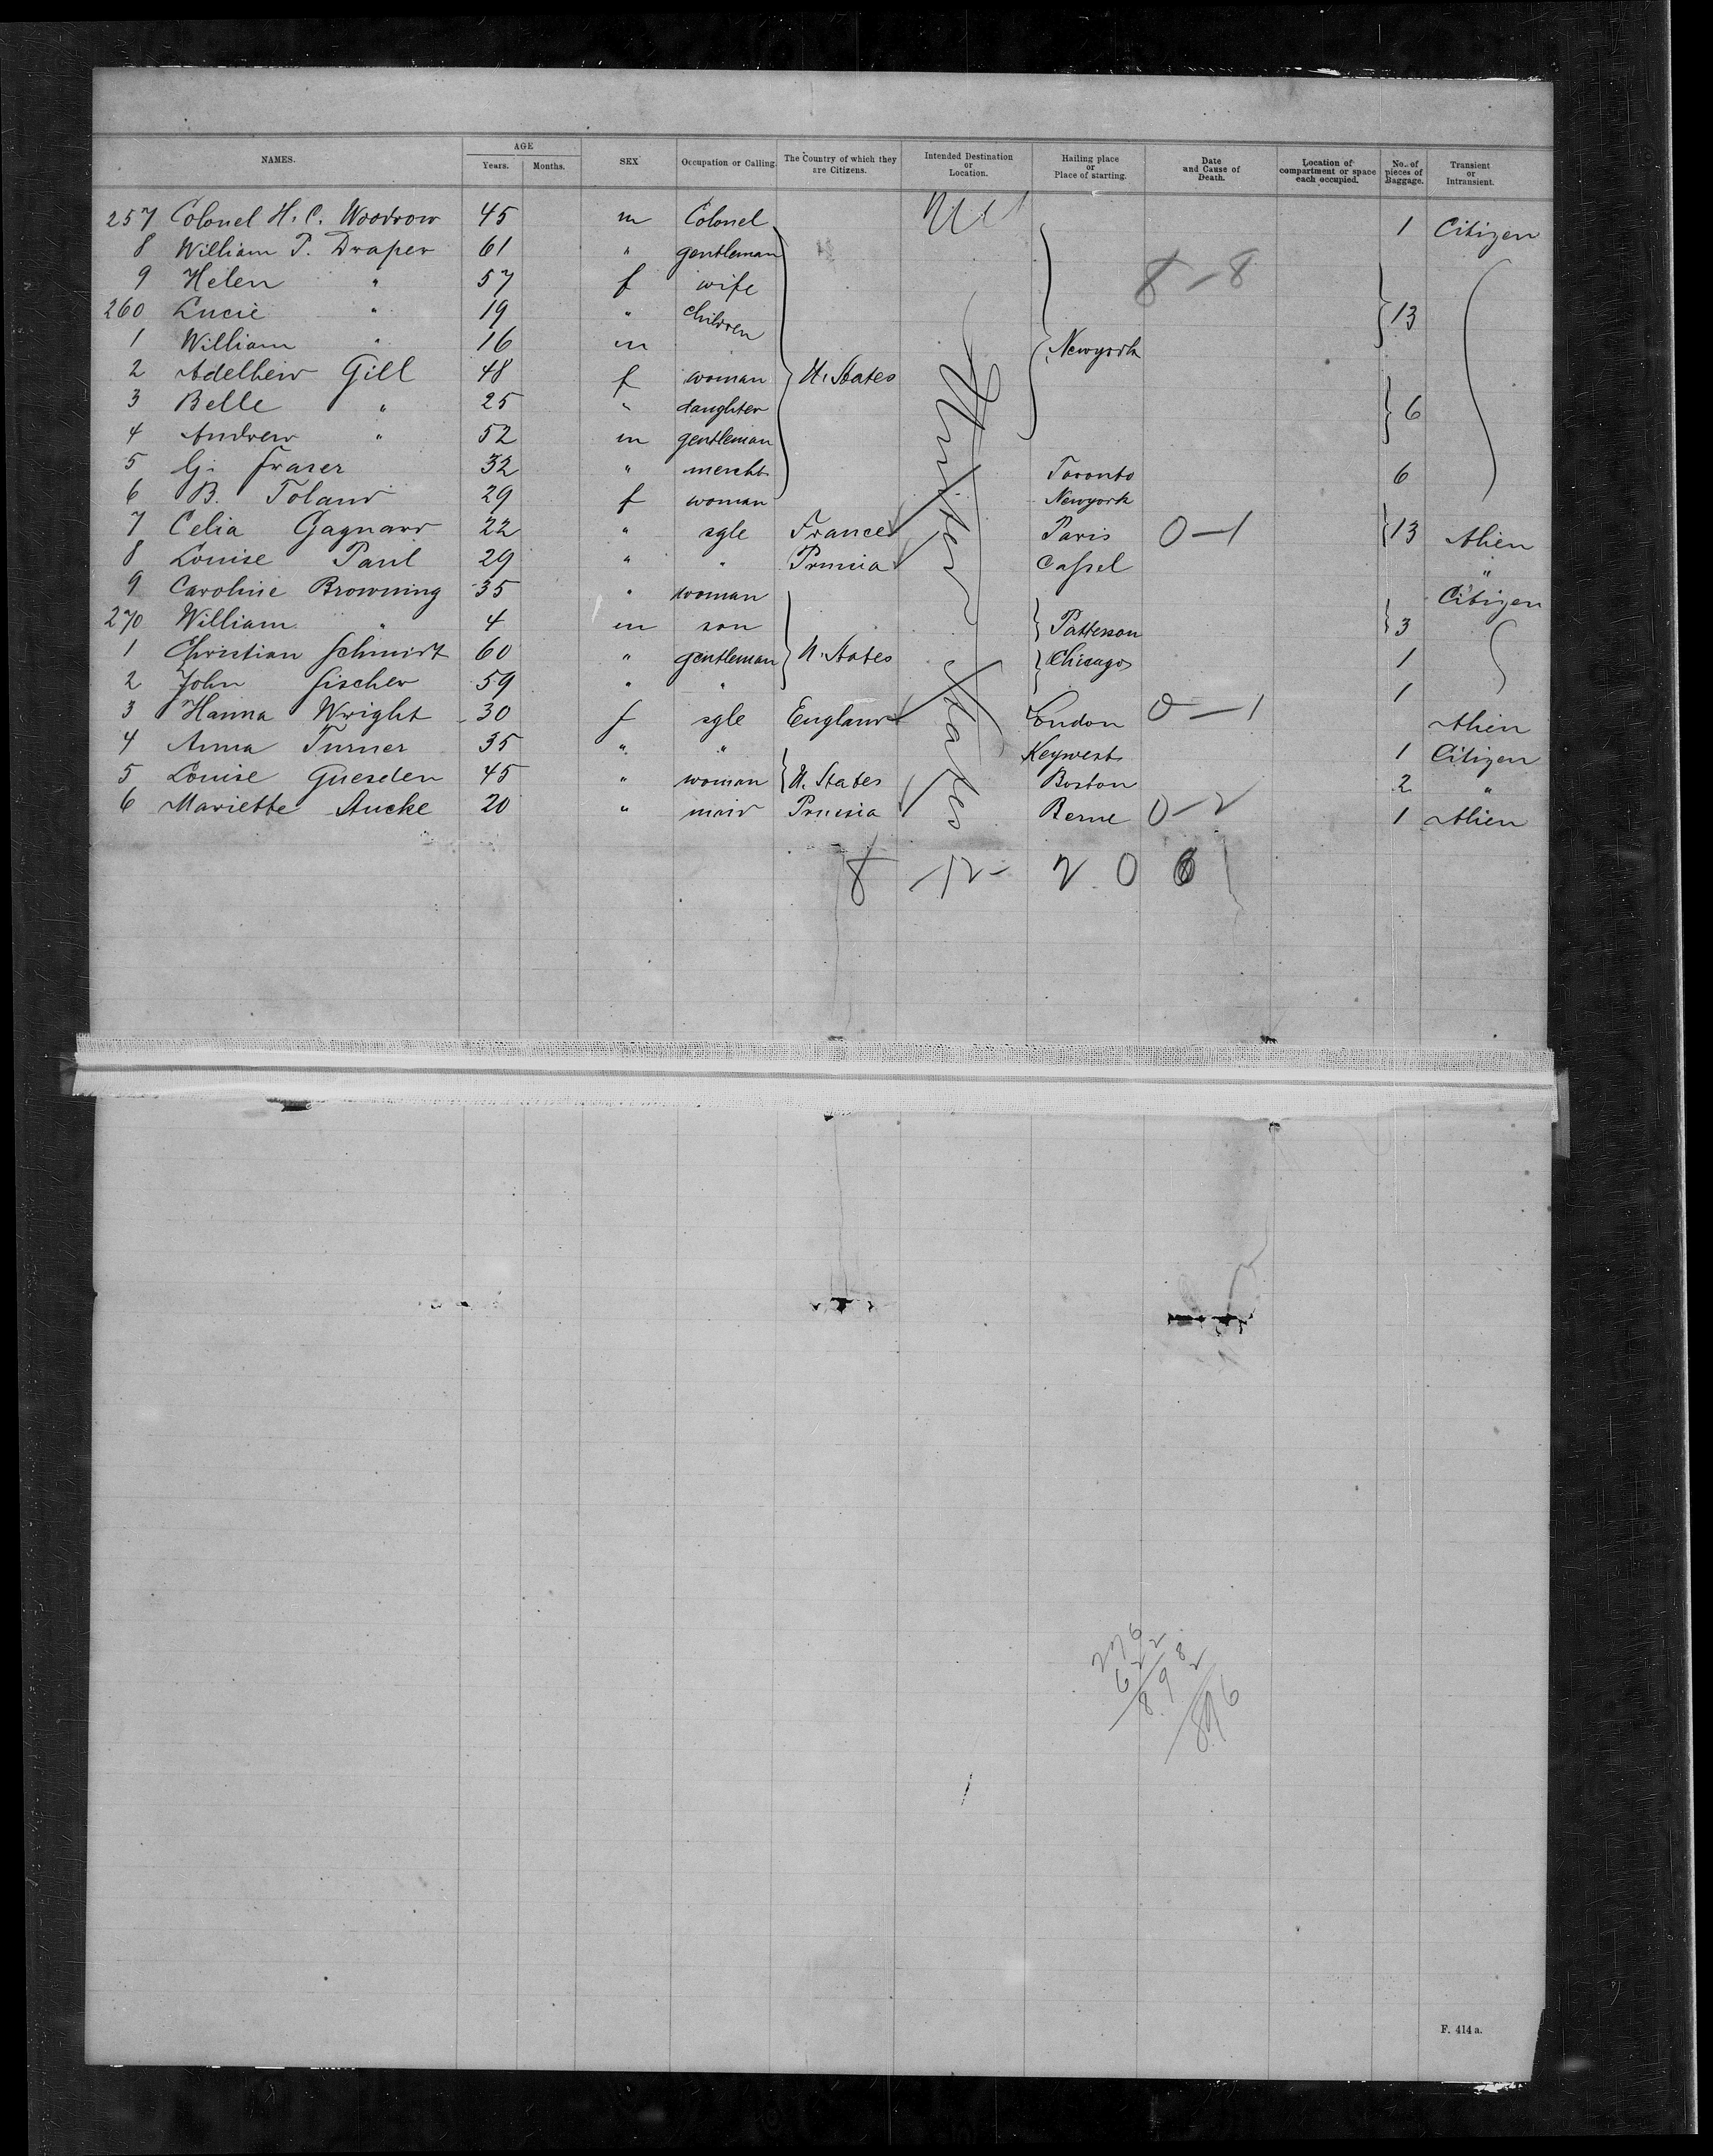 NAMES. AGE SEX Occupation or Calling. The Country of which they are Citizens. Intended Destination or Location. Hailing place or Place of starting. Date and Cause of Death. Location of compartment or space each occupied. No. of pieces of Baggage. Transient or Intransient.
Years. Months.
257 Colonel H. C. Woodrow 45 m Colonel 1 Citizen
8 William P. Draper 61 " gentleman
9 Helen " 57 f wife 8-8
260 Lucie " 19 " children 13
1 William " 16 m Newyork
2 Adelheid Gill 48 f woman U. States
3 Belle " 25 " daughter 6
4 Andrew " 52 m gentleman
5 G. Fraser 32 " mercht Toronto 6
6 B. Toland 29 f woman Newyork
7 Celia Gagnard 22 " sgle France Paris 0-1 13 Alien
8 Louise Paul 29 " " Prussia Cassel "
9 Caroline Browning 35 " woman Citizen
270 William " 4 m son Patterson 3
1 Christian Schmidt 60 " gentleman U. States Chicago 1
2 John Fischer 59 " " 1
3 Hanna Wright 30 f sgle England London 0-1 Alien
4 Anna Turner 35 " " Keywest 1 Citizen
5 Louise Guesden 45 " woman U. States Boston 2 "
6 Mariette Stucke 20 " maid Prussia Berne 0-2 1 Alien
United States
8 -12- 20
276
622
898
2
896
F. 414 a.